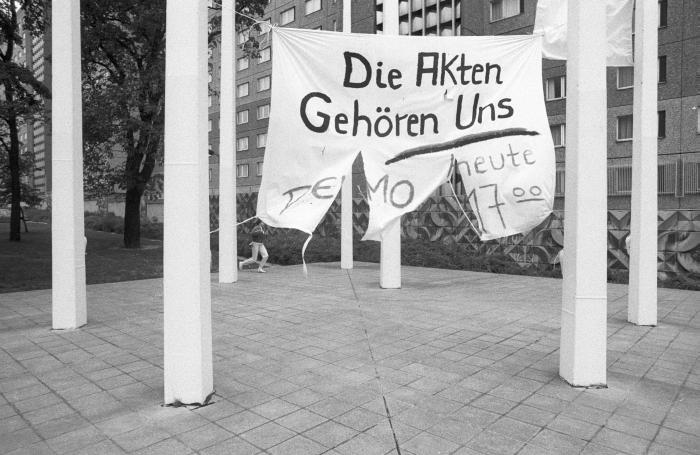 Die Akten
Gehören Uns
DEMO heute
17 00